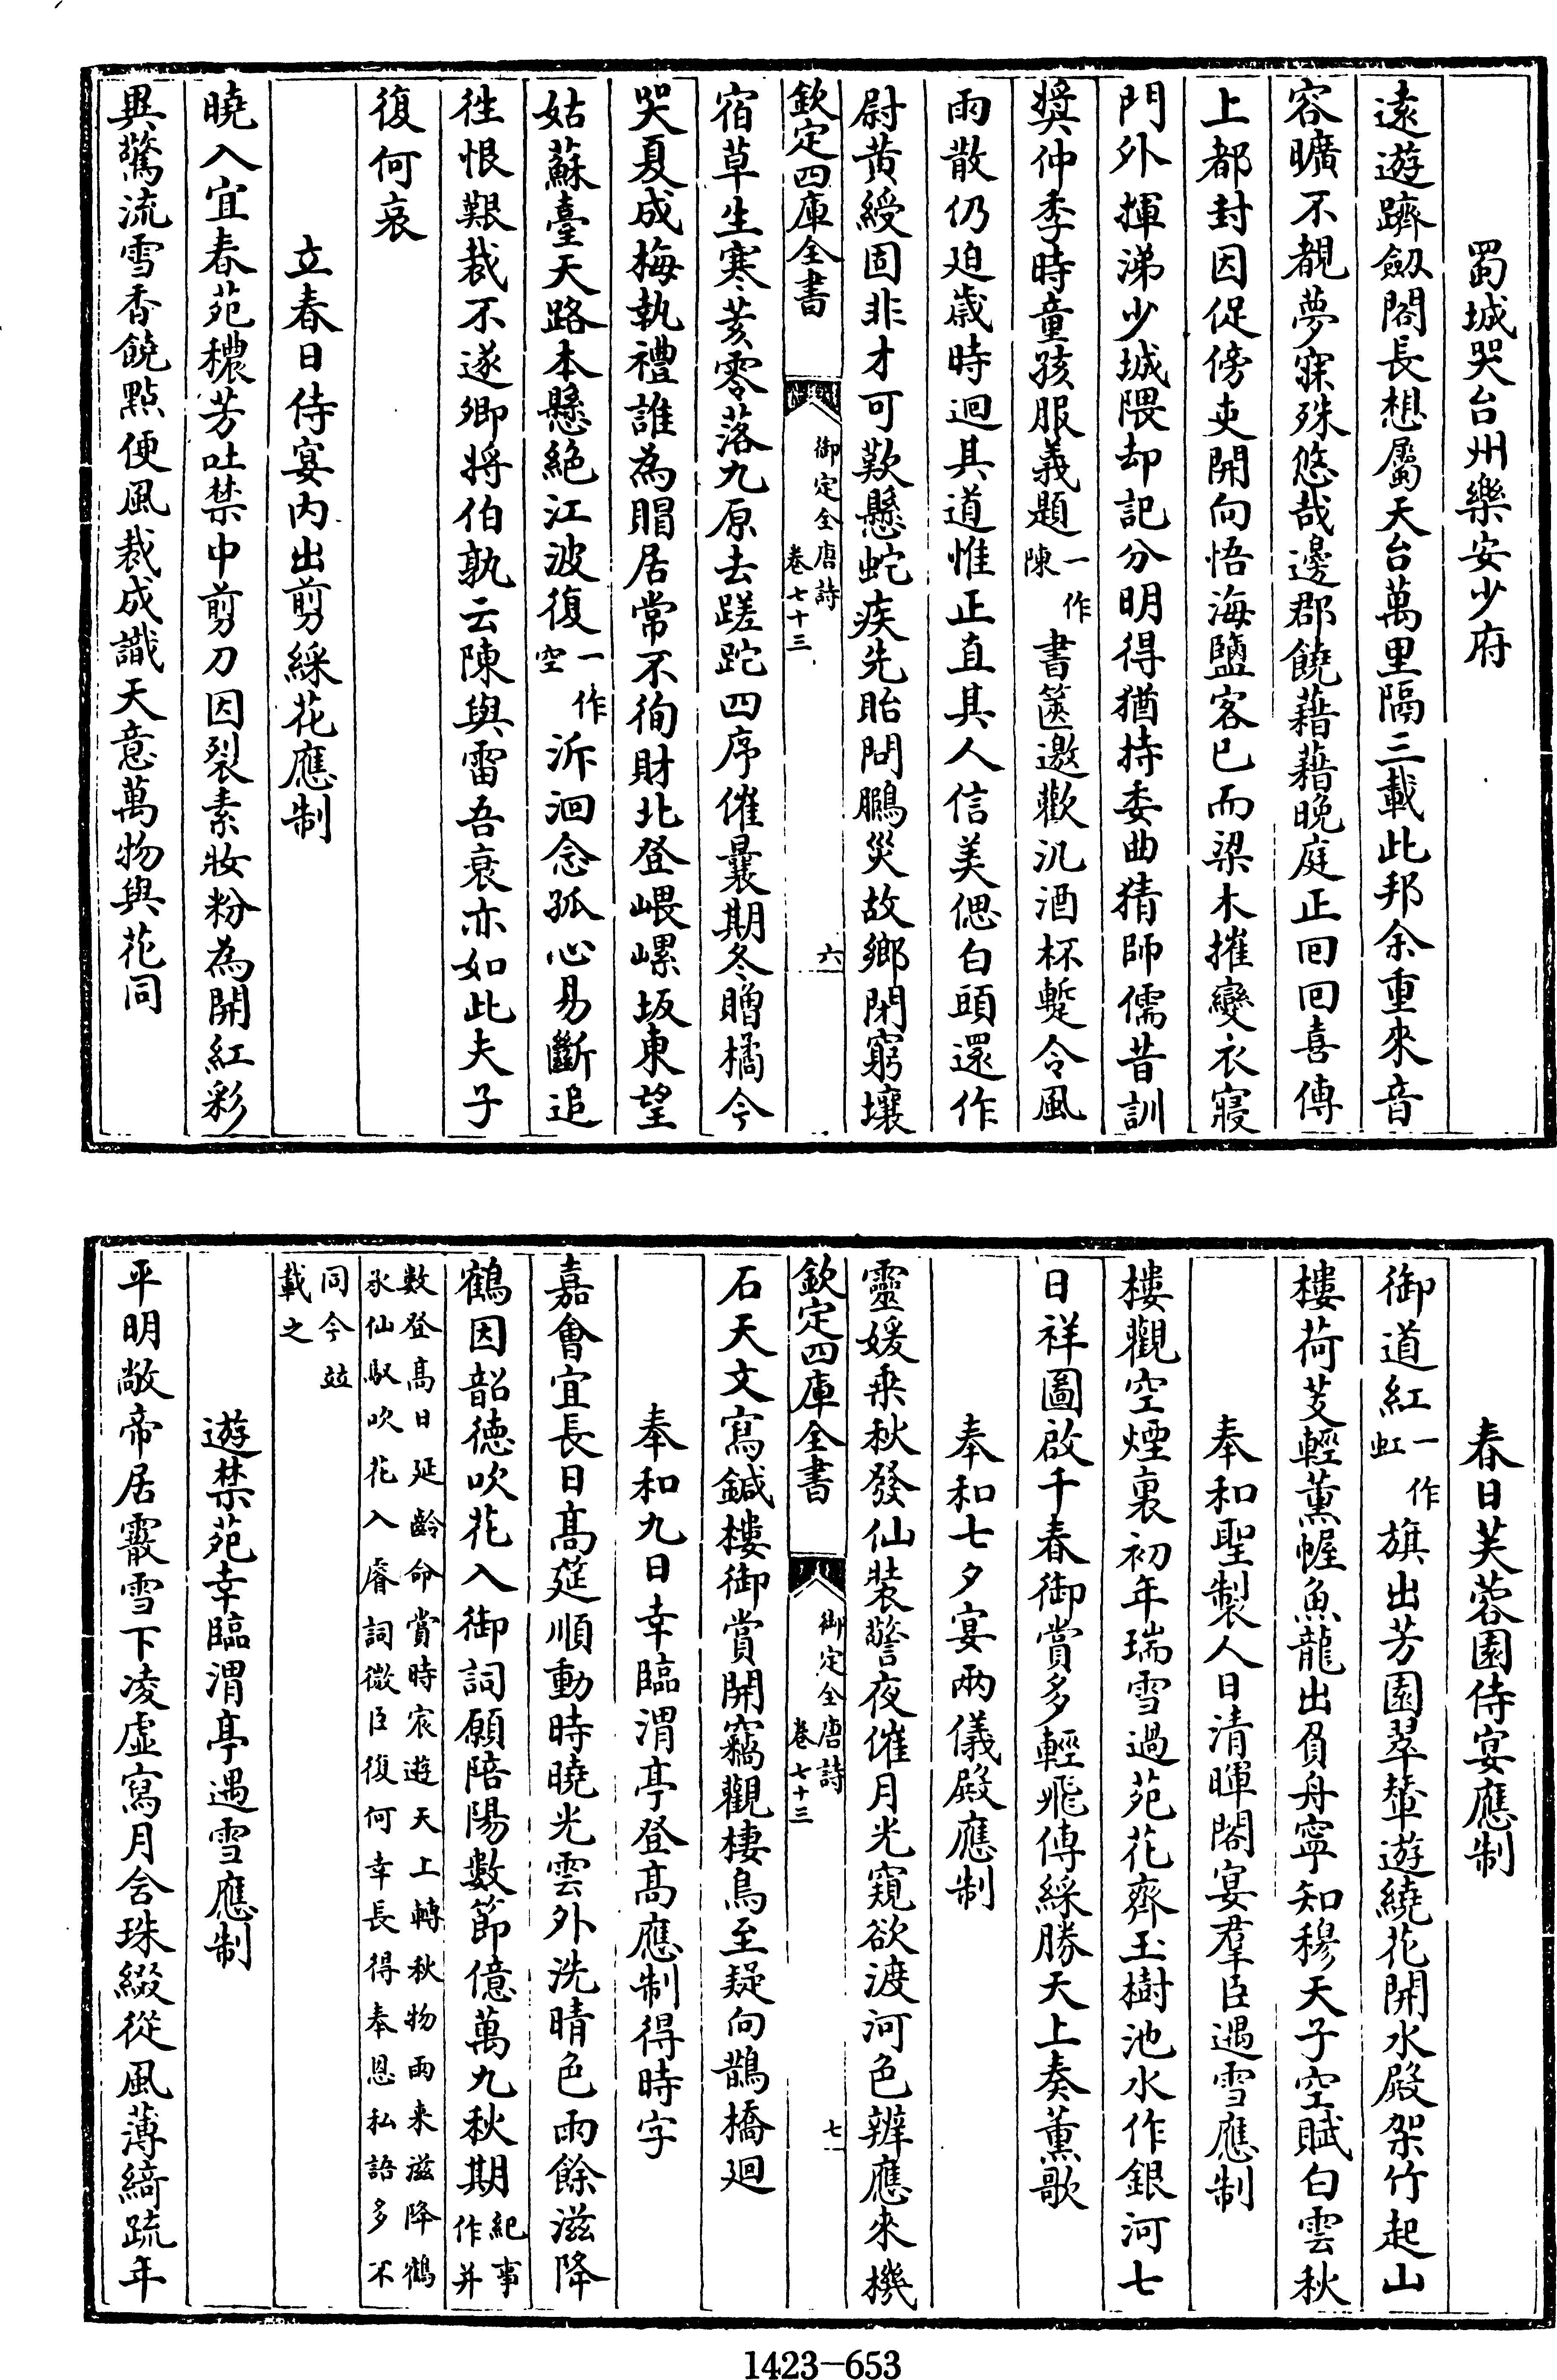 蜀城哭台州樂安少府
遠遊躋劒閣長想屬天台萬里隔三載此邦余重來音
容曠不覩夢寐殊悠哉邊郡饒藉藉晚庭正回回喜傳
上都封因促傍吏開向悟海鹽客已而梁木摧變衣寢
門外揮涕少城隈却記分明得猶持委曲猜師儒昔訓
奬仲季時童孩服義題一作陳書篋邀歡汎酒杯蹔令風
雨散仍迫歲時迴其道惟正直其人信美偲白頭還作
尉黃綬固非才可歎懸蛇疾先貽問鵩災故鄉閉窮壤
欽定四庫全書 御定全唐詩卷七十三 六
宿草生寒荄零落九原去蹉跎四序催曩期冬贈橘今
哭夏成梅執禮誰為賵居常不徇財北登嵔㠥坂東望
姑蘇臺天路本懸絕江波復一作空泝洄念孤心易斷追
徃恨艱裁不遂卿將伯孰云陳與雷吾衰亦如此夫子
復何哀
立春日侍宴内出剪綵花應制
曉入宜春苑穠芳吐禁中剪刀因裂素妝粉為開紅彩
異驚流雪香饒點便風裁成識天意萬物與花同
春日芙蓉園侍宴應制
御道紅一作虹旗出芳園翠輦遊繞花開水殿架竹起山
樓荷芰輕薰幄魚龍出負舟寧知穆天子空賦白雲秋
奉和聖製人日清暉閣宴羣臣遇雪應制
樓觀空煙裏初年瑞雪過苑花齊玉樹池水作銀河七
日祥圖啟千春御賞多輕飛傳綵勝天上奏薰歌
奉和七夕宴兩儀殿應制
靈媛乘秋發仙裝警夜催月光窺欲渡河色辨應來機
欽定四庫全書 御定全唐詩卷七十三 七
石天文寫鍼樓御賞開竊觀棲鳥至疑向鵲橋迴
奉和九日幸臨渭亭登髙應制得時字
嘉會宜長日髙筵順動時曉光雲外洗晴色雨餘滋降
鶴因韶徳吹花入御詞願陪陽數節億萬九秋期紀事作并
數登髙日延齡命賞時宸遊天上轉秋物雨来滋降鶴
承仙馭吹花入睿詞微臣復何幸長得奉恩私語多不
同今竝載之
遊禁苑幸臨渭亭遇雪應制
平明敞帝居霰雪下凌虛寫月含珠綴從風薄綺疏年
1423—653